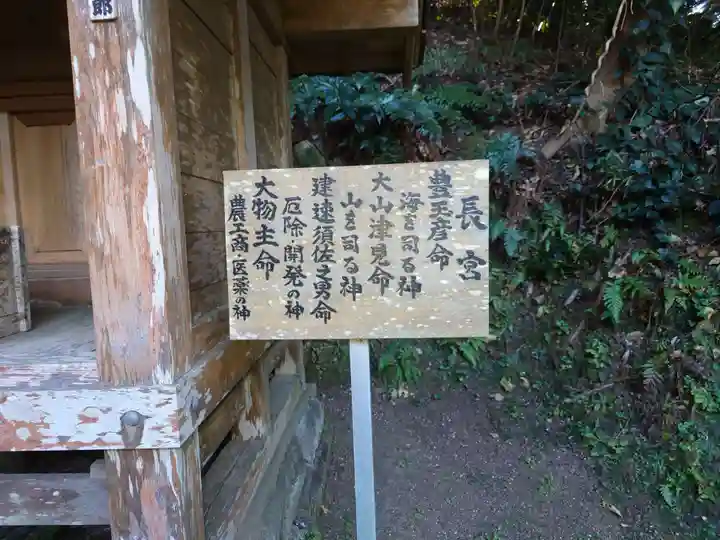 長宮
豊玉彦命
海を司る神
大山津見命
山を司る神
建速須佐之男命
厄除・開発の神
大物主命
農工商・医薬の神
郎